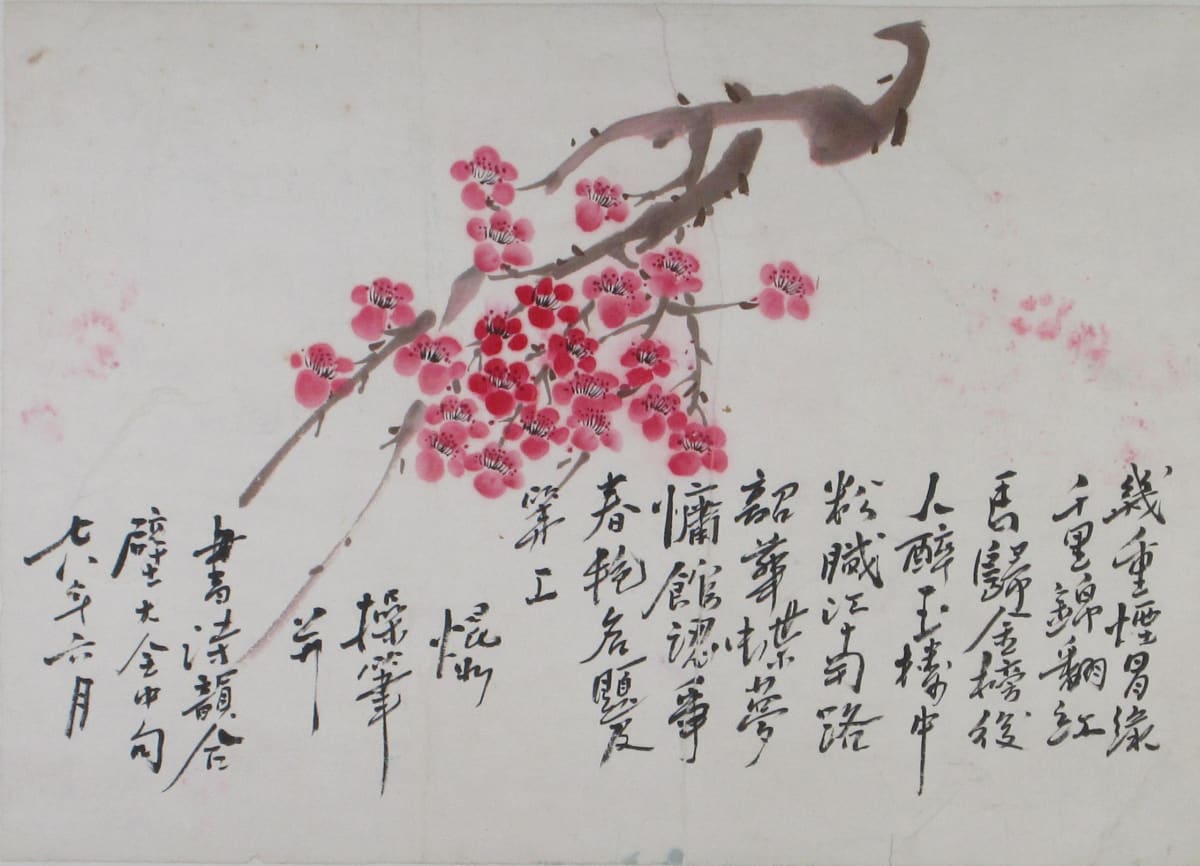 幾重煙冒綠
千里錦翻紅
馬歸金榜後
人醉玉樓中
粉膩江南路
韶華蝶夢
慵館認爭
春艷名題
筭工
操筆
并
書詩韻合
璧大全中句
七八年六月